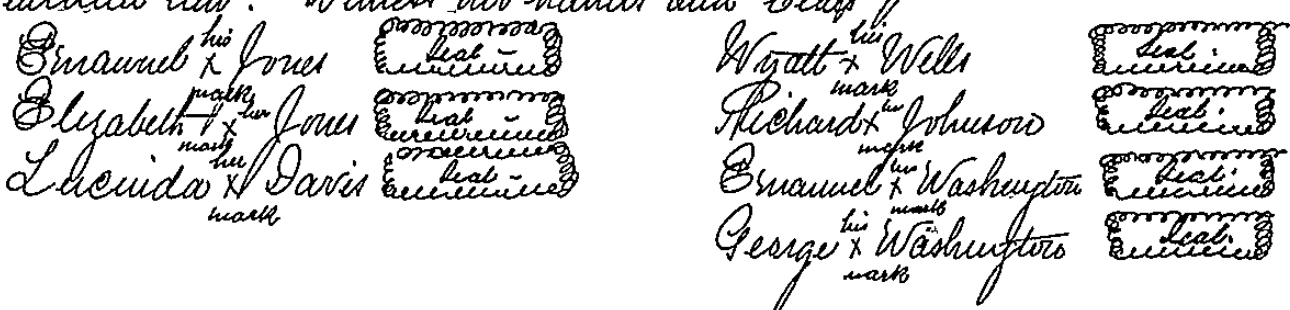 Witness our hands and seals
Emanuel his x mark Jones Seal
Elizabeth her x mark Jones Seal
Lucinda her x mark Davis Seal
Wyatt his x mark Wells Seal
Richard his x mark Johnson Seal
Emanuel his x mark Washington Seal
George his x mark Washington Seal